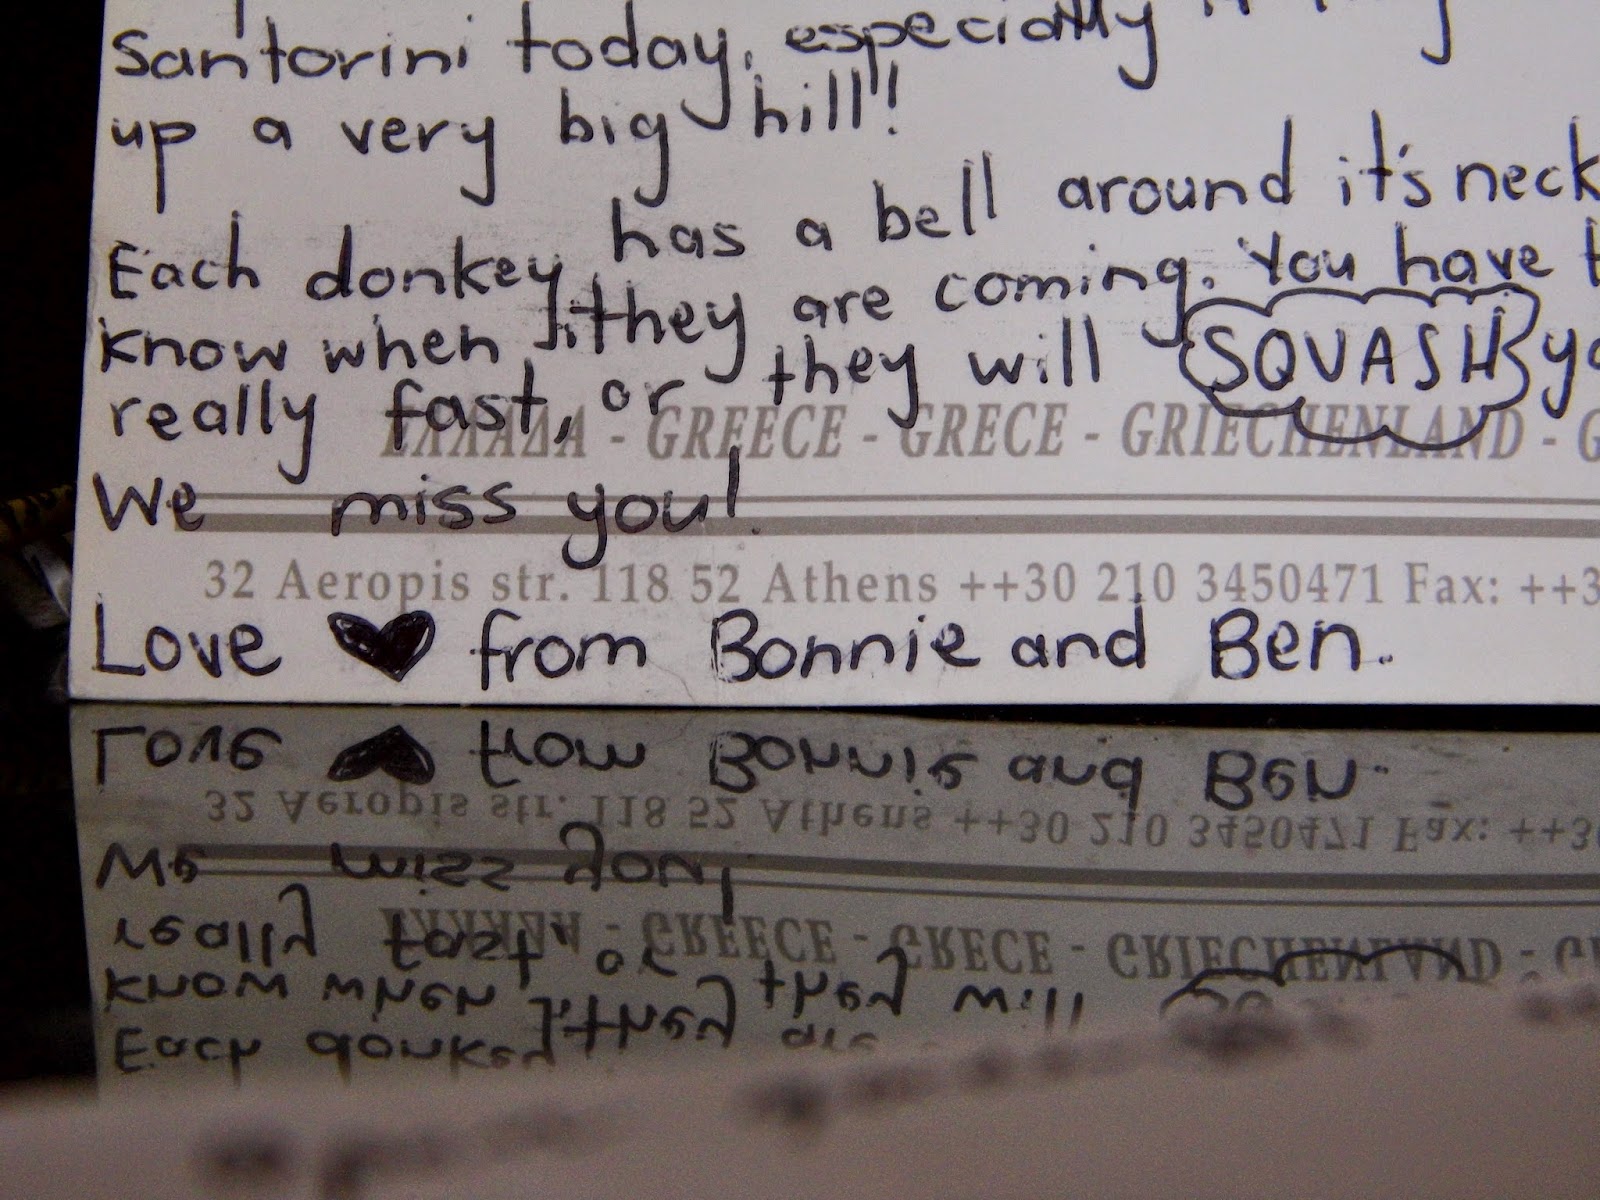 Santorini today, especially
up a very big hill!!
Each donkey has a bell around it's neck
know when they are coming. You have
really fast, or they will SQUASH
ΕΛΛΑΔΑ - GREECE - GRECE - GRIECHENLAND - G
We miss you!
32 Aeropis str. 118 52 Athens ++30 210 3450471 Fax: ++3
Love ♥ from Bonnie and Ben.